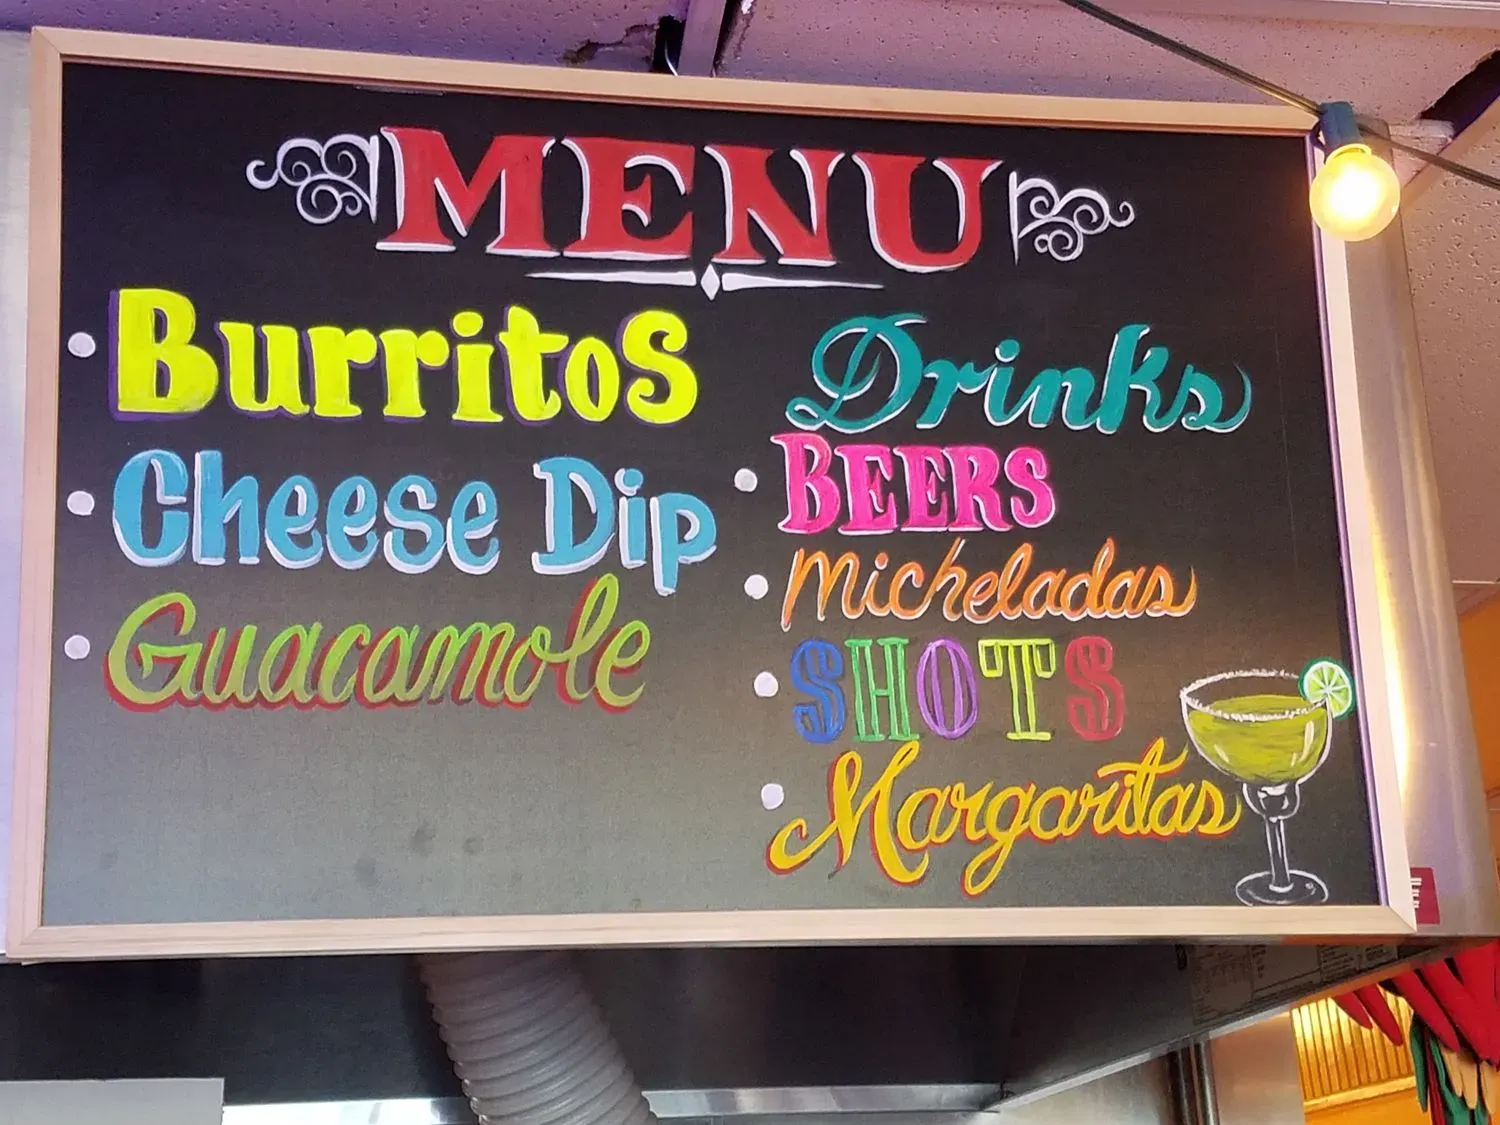 MENU
Burritos
Cheese Dip
Guacamole
Drinks
BEERS
Micheladas
SHOTS
Margaritas